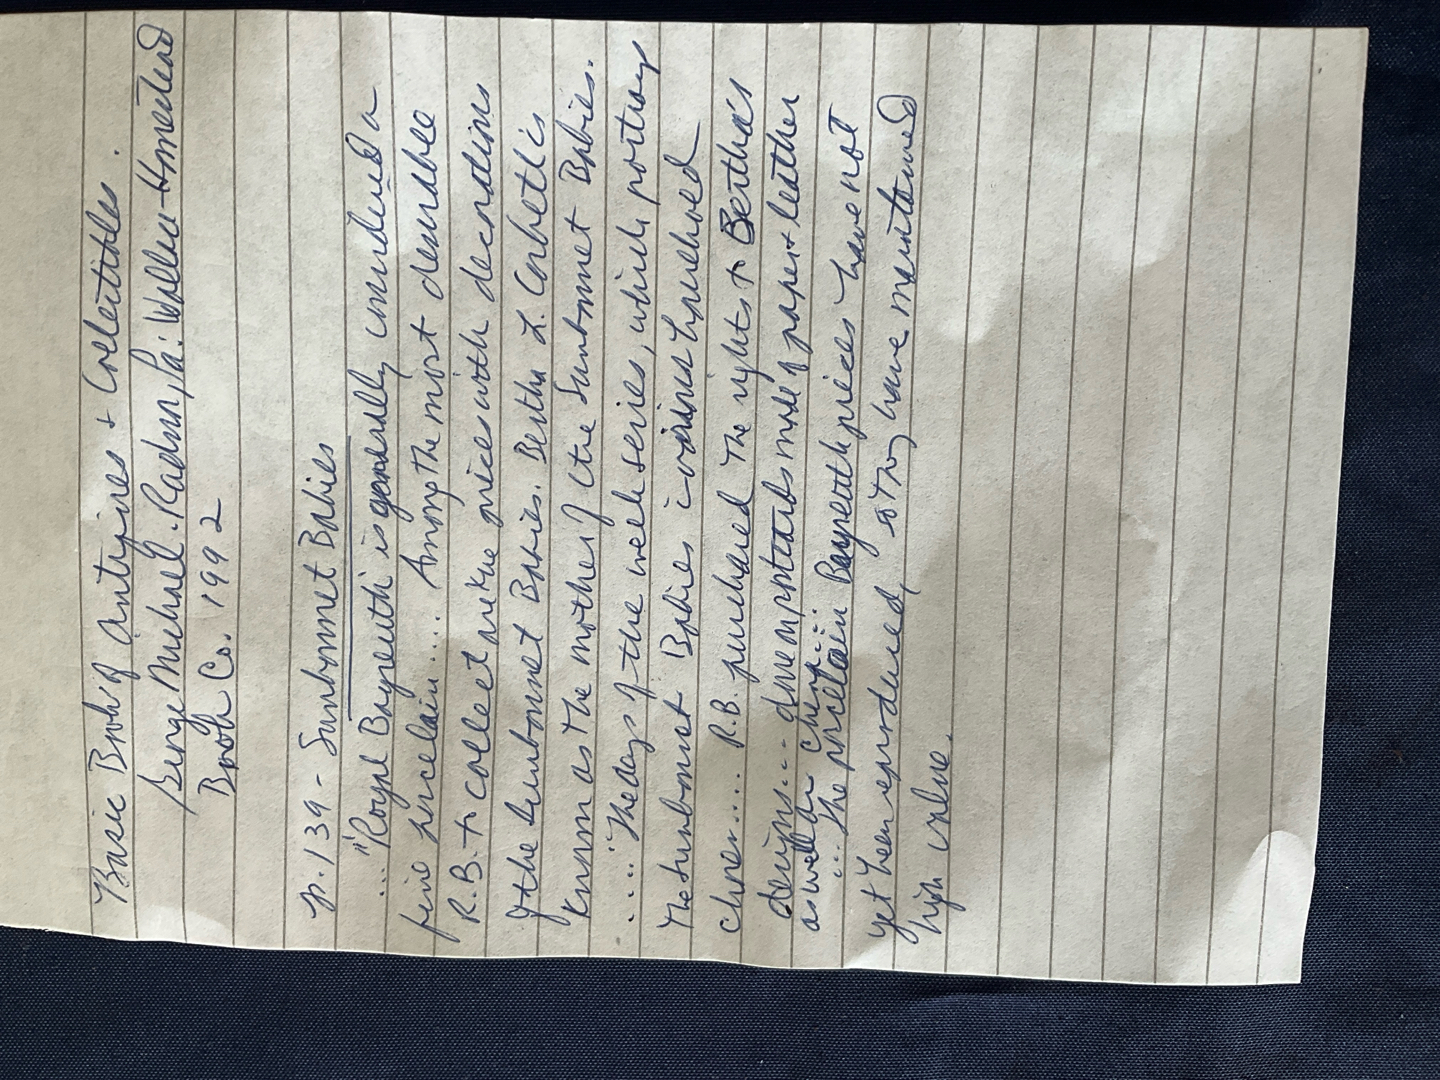 Basic Book of Antiques + Collectibles.
George Michael. Radnor, Pa: Wallace-Homestead
Book Co. 1992
p. 139 - Sunbonnet Babies
... "Royal Bayreuth is generally considered a
fine porcelain.... Among the most desirable
R.B. to collect are the pieces with decorations
of the Sunbonnet Babies. Bertha L. Corbett is
known as the mother of the Sunbonnet Babies.
.... The days of the week series, which portrays
the Sunbonnet Babies in various household
chores.... R.B. purchased the rights to Bertha's
designs.... done on postcards made of paper + leather
as well as on china....
... The porcelain Bayreuth pieces have not
yet been reproduced, so they have maintained
high value.